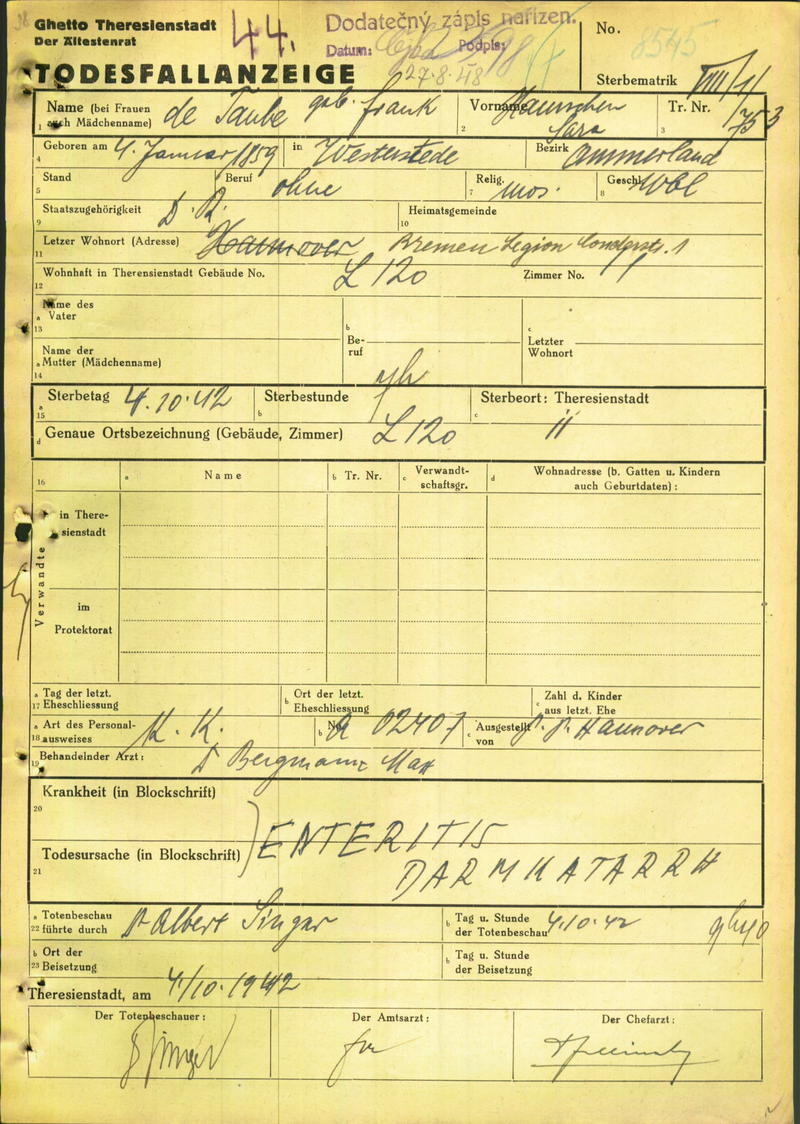 Ghetto Theresienstadt
Der Ältestenrat
44.
Dodatečný zápis nařízen.
Datum: Podpis:
27.8.48
No. 8545
TODESFALLANZEIGE
Sterbematrik VIII/1
Name (bei Frauen auch Mädchenname) de Taube geb. Frank
1
Vornamen Hannchen Sara
2
Tr. Nr. 753
3
Geboren am 4. Januar 1859 in Westerstede Bezirk Ammerland
4
Stand Beruf ohne Relig. mos. Geschl. Wbl
5 7 8
Staatszugehörigkeit D. R. Heimatsgemeinde
9 10
Letzer Wohnort (Adresse) Hannover Bremen Legion 1
11
Wohnhaft in Therensienstadt Gebäude No. L 120 Zimmer No. 1
12
Name des
a Vater
13
b
Beruf
c
Letzter
Wohnort
Name der
a Mutter (Mädchenname)
14
Sterbetag 4.10.42 Sterbestunde Sterbeort: Theresienstadt
a 15 b c
d Genaue Ortsbezeichnung (Gebäude, Zimmer) L 120 "
16 a Name b Tr. Nr. c Verwandtschaftsgr. d Wohnadresse (b. Gatten u. Kindern auch Geburtdaten):
Verwandte
in Theresienstadt
im
Protektorat
a Tag der letzt.
17 Eheschliessung
b Ort der letzt.
Eheschliessung
c Zahl d. Kinder
aus letzt. Ehe
a Art des Personal-
18 ausweises K. K.
b No. A 02407
c Ausgestellt
von P. P. Hannover
19 Behandelnder Arzt: Dr Bergmann Max
Krankheit (in Blockschrift)
20
ENTERITIS
Todesursache (in Blockschrift)
21
DARMKATARRH
a Totenbeschau
22 führte durch Dr Albert Singer
b Tag u. Stunde
der Totenbeschau 4.10.42
b Ort der
23 Beisetzung
b Tag u. Stunde
der Beisetzung
Theresienstadt, am 4/10.1942
Der Totenbeschauer: Der Amtsarzt: Der Chefarzt:
Singer